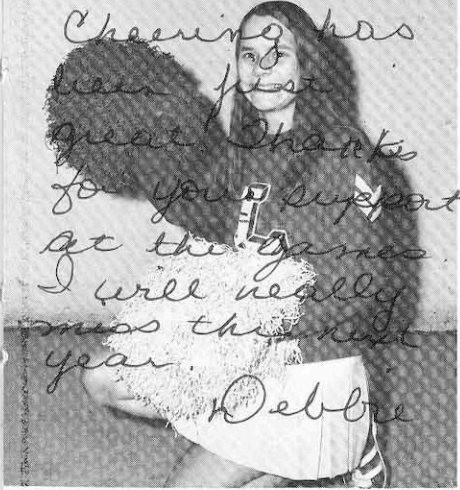 Cheering has
been just
great. Thanks
for your support
at the games.
I will really
miss this next
year.
Debbie
L